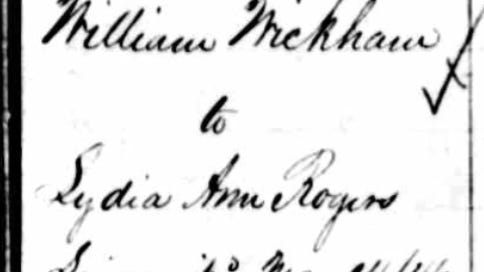 William Wickham
to
Lydia Ann Rogers